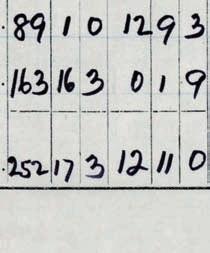 89 1 0 12 9 3
163 16 3 0 1 9
252 17 3 12 11 0